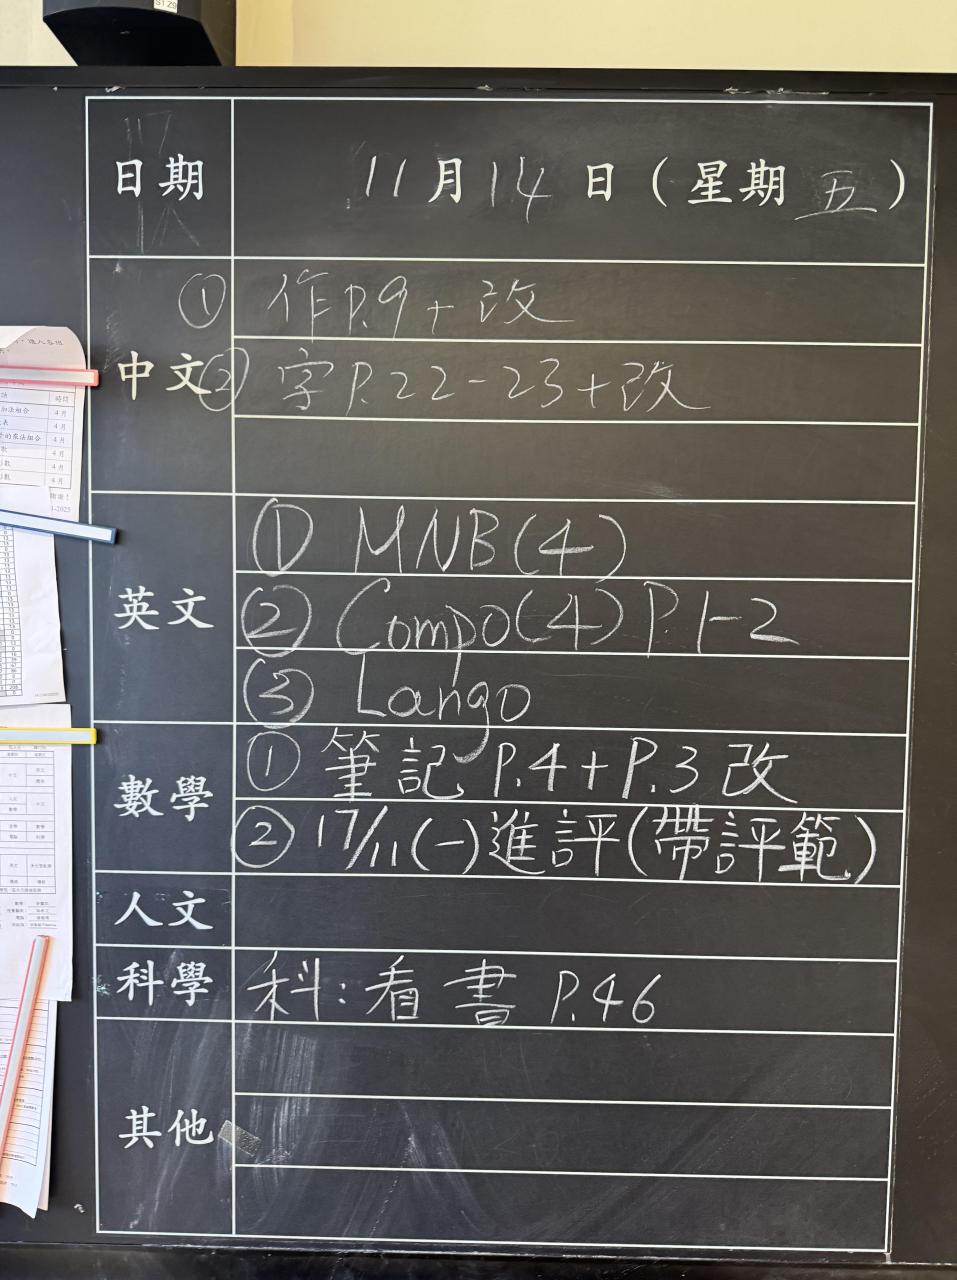 S1 Z9
日期 11月14日(星期五)
中文
① 作P.9+改
② 字P.22-23+改
英文
① MNB(4)
② Compo(4)P.1-2
③ Lango
數學
① 筆記P.4+P.3改
② 17/11(一)進評(帶評範)
人文
科學
科:看書 P.46
其他
時間
4月
4月
4月
4月
4月
4月